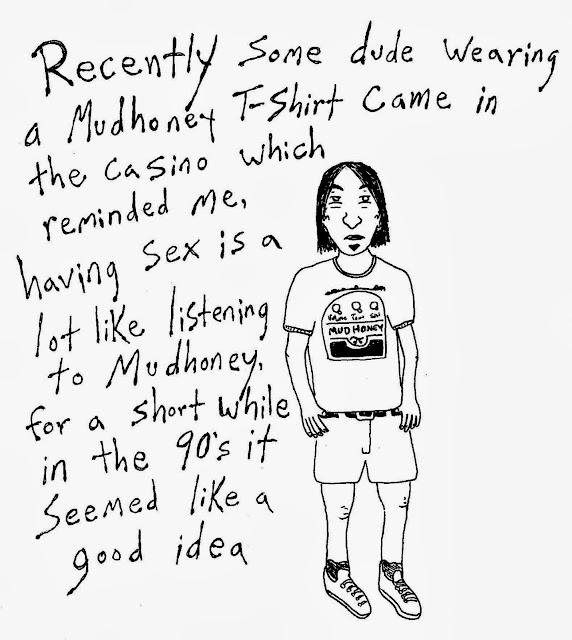 Recently some dude wearing
a Mudhoney T-Shirt came in
the casino which
reminded me,
having sex is a
lot like listening
to Mudhoney.
for a short while
in the 90's it
seemed like a
good idea
MUDHONEY